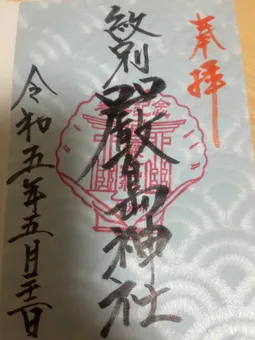 奉拝
紋別
嚴島神社
令和五年五月 日